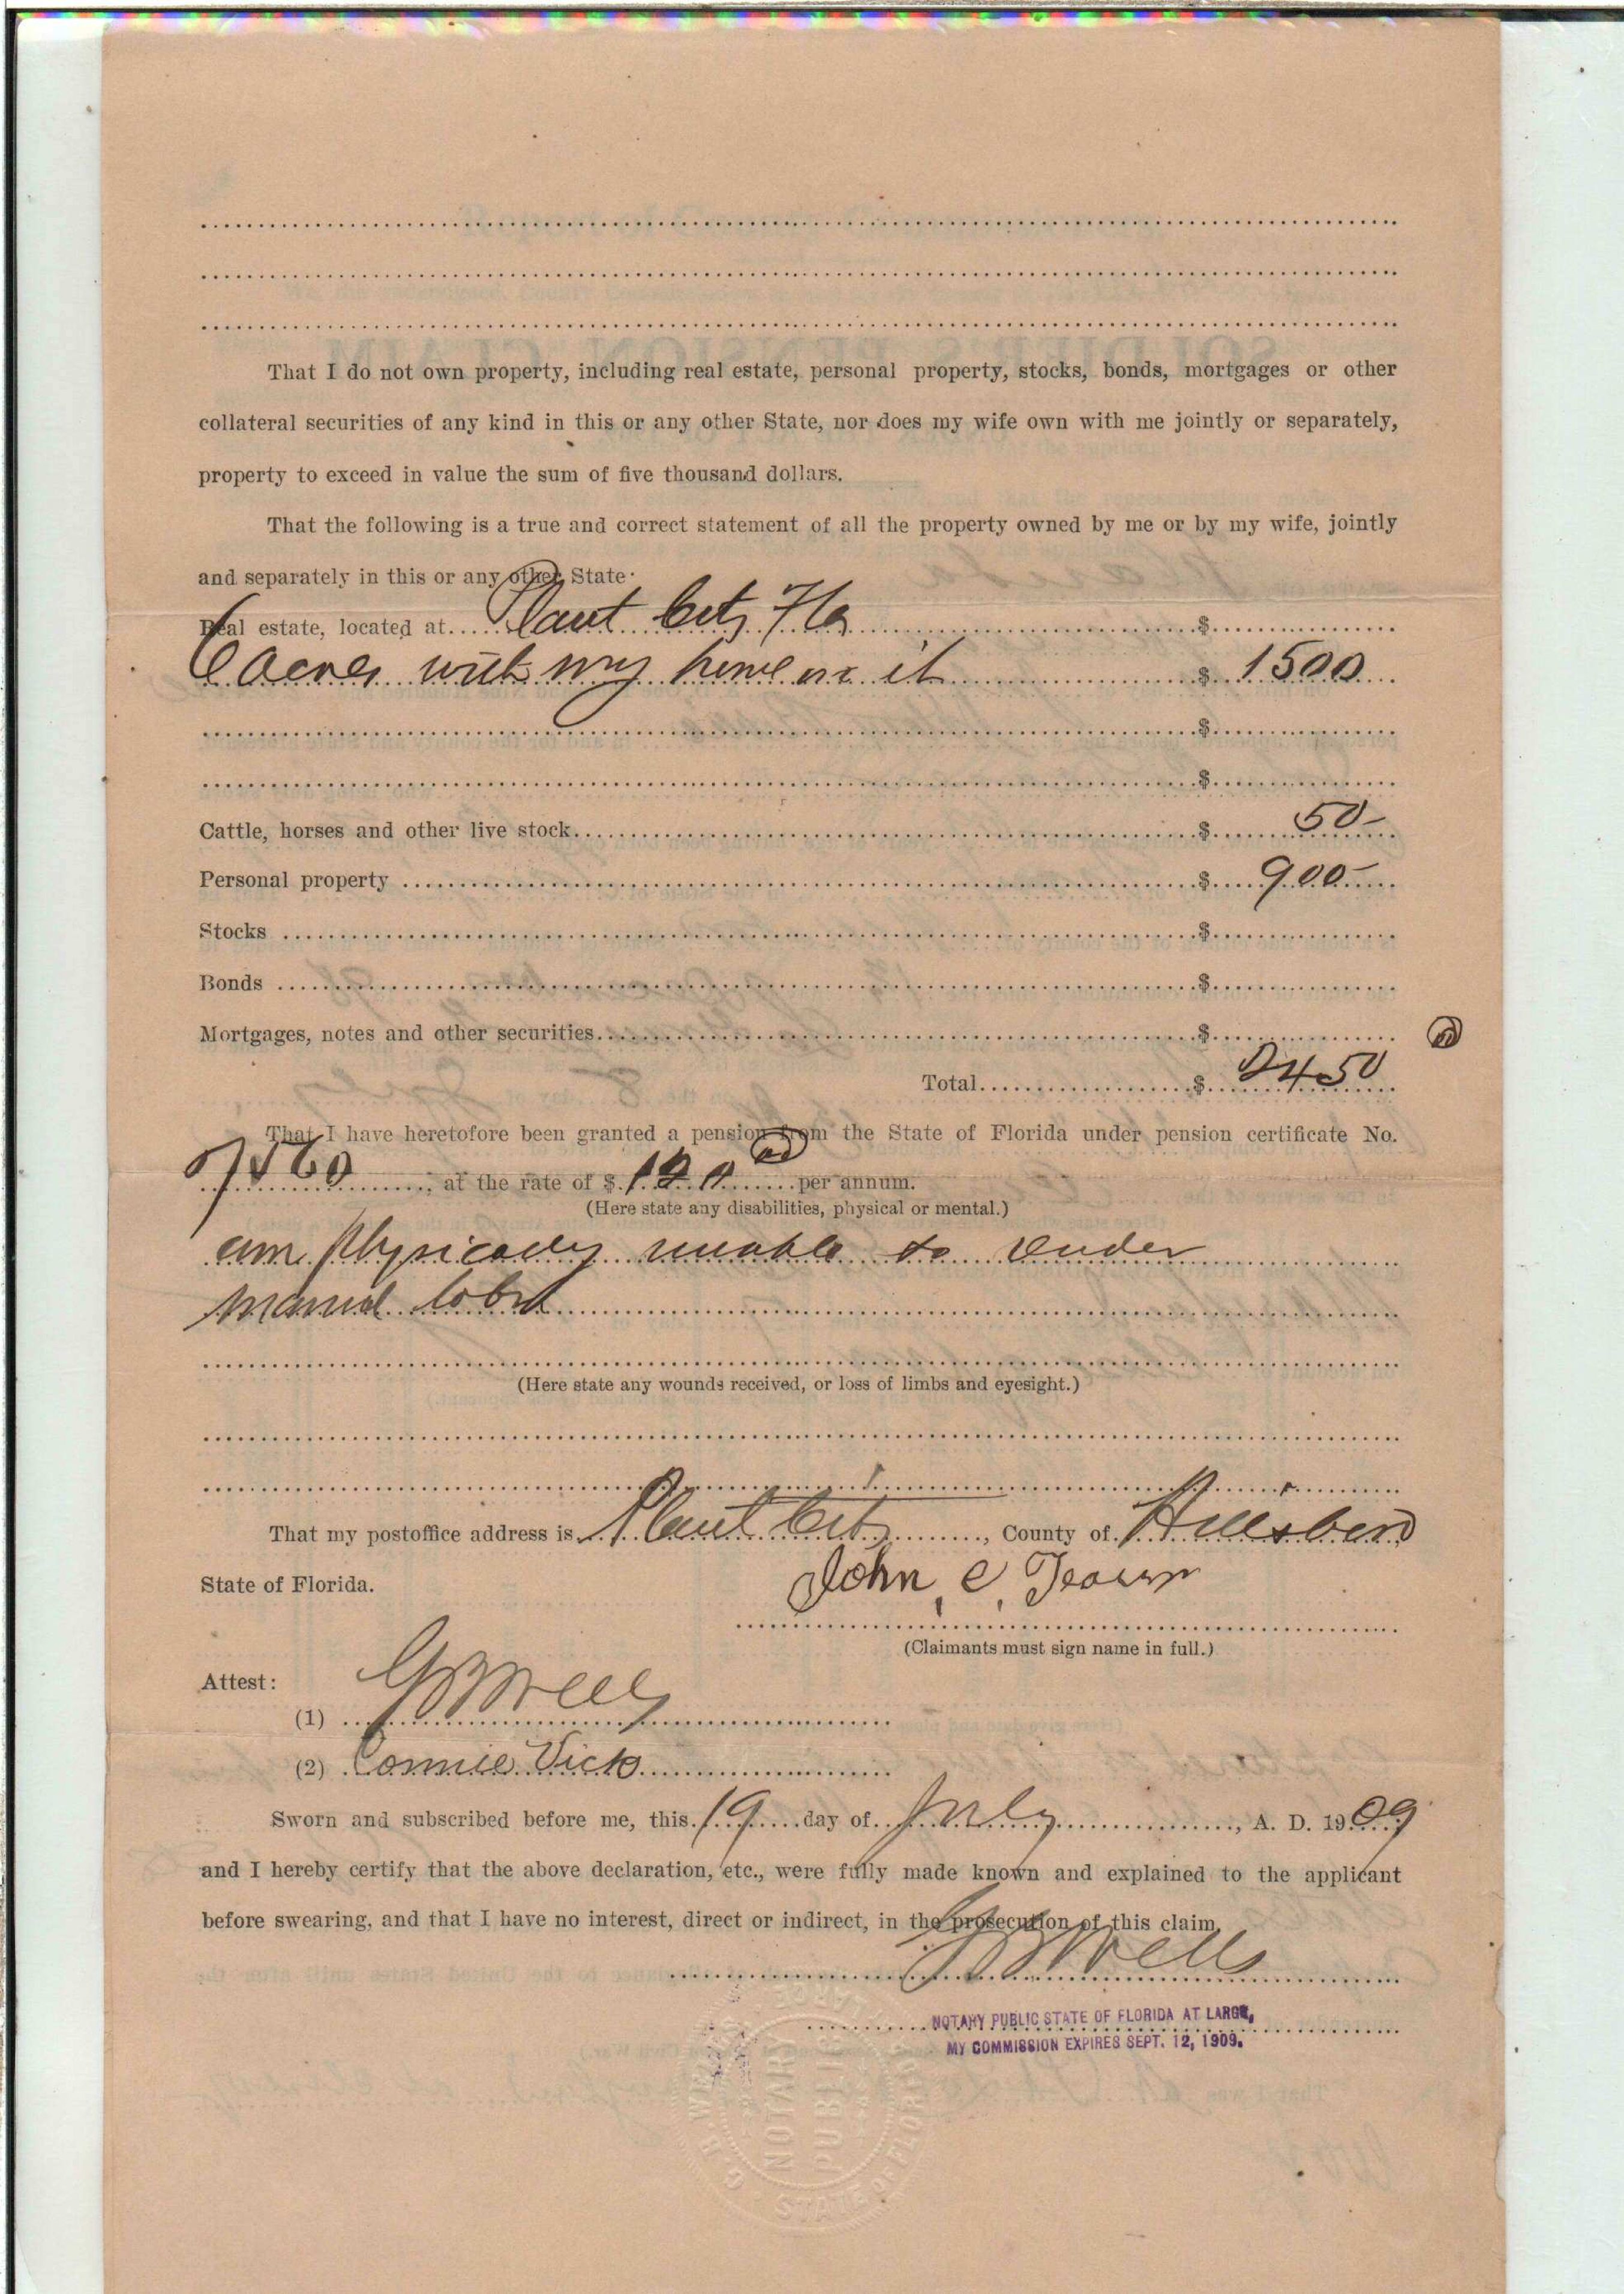 That I do not own property, including real estate, personal property, stocks, bonds, mortgages or other
collateral securities of any kind in this or any other State, nor does my wife own with me jointly or separately,
property to exceed in value the sum of five thousand dollars.
That the following is a true and correct statement of all the property owned by me or by my wife, jointly
and separately in this or any other State
Real estate, located at Plant City Fla $
6 acres with my home on it $ 1500
$
$
Cattle, horses and other live stock $ 50
Personal property $ 900
Stocks $
Bonds $
Mortgages, notes and other securities $
Total $ 2450
That I have heretofore been granted a pension from the State of Florida under pension certificate No.
at the rate of $ 120 per annum.
(Here state any disabilities, physical or mental.)
am physically unable to render
manual labor
(Here state any wounds received, or loss of limbs and eyesight.)
That my postoffice address is Plant City, County of Hillsboro
State of Florida.
John C.
(Claimants must sign name in full.)
Attest:
(1) G B Wells
(2) Connie Vick
Sworn and subscribed before me, this 19 day of July, A. D. 1909
and I hereby certify that the above declaration, etc., were fully made known and explained to the applicant
before swearing, and that I have no interest, direct or indirect, in the prosecution of this claim.
G B Wells
NOTARY PUBLIC STATE OF FLORIDA AT LARGE,
MY COMMISSION EXPIRES SEPT. 12, 1909.
NOTARY PUBLIC
STATE OF FLORIDA